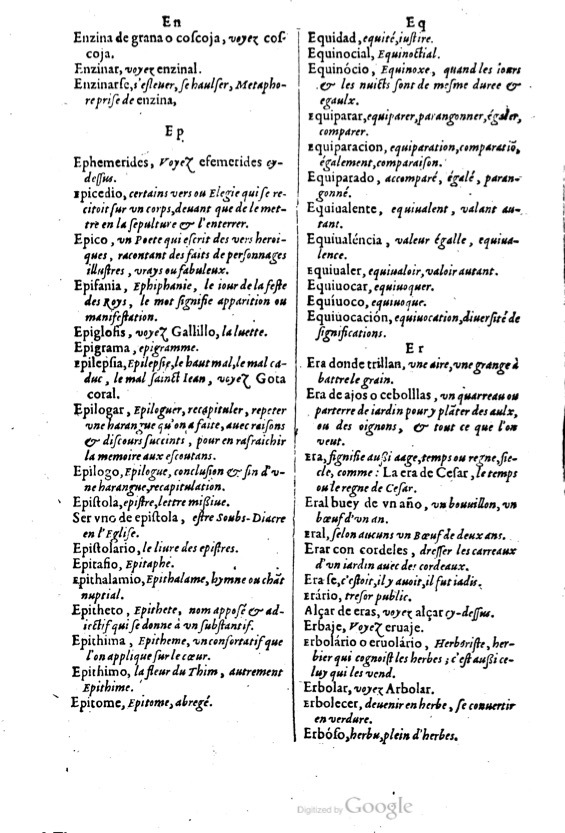 En
Enzina de grana o coſcoja, voyez coſ-
coja.
Enzinar, voyez enzinal.
Enzinarſe, s'eſleuer, ſe haulſer, Metapho-
re priſe de enzina,
Ep
Ephemerides, Voyez efemerides cy-
deſſus.
Epicedio, certains vers ou Elegie qui ſe re-
citoit ſur un corps, deuant que de le met-
tre en la ſepulture & l'enterrer.
Epico, vn Poete qui eſcrit des vers heroi-
ques, racontant des faits de perſonnages
illuſtres, vrays ou fabuleux.
Epifania, Ephiphanie, le iour de la feſte
des Roys, le mot ſignifie apparition ou
manifeſtation.
Epigloſis, voyez Gallillo, la luette.
Epigrama, epigramme.
Epilepſia, Epilepſie, le haut mal, le mal ca-
duc, le mal ſainct Iean, voyez Gota
coral.
Epilogar, Epiloguer, recapituler, repeter
vne harangue qu'on a faite, auec raiſons
& diſcours ſuccints, pour en rafraichir
la memoire aux eſcoutans.
Epilogo, Epilogue, concluſion & fin d'v-
ne harangue, recapitulation.
Epiſtola, epiſtre, lettre miſſiue.
Ser vno de epiſtola, eſtre Soubs-Diacre
en l'Egliſe.
Epiſtolario, le liure des epiſtres.
Epitafio, Epitaphe.
Epithalamio, Epithalame, hymne ou chāt
nuptial.
Epitheto, Epithete, nom appoſé & ad-
iectif qui ſe donne à vn ſubſtantif.
Epithima, Epitheme, vn confortatif que
l'on applique ſur le cœur.
Epithimo, la fleur du Thim, autrement
Epithime.
Epitome, Epitome, abregé.
Eq
Equidad, equité, iuſtire.
Equinocial, Equinoctial.
Equinócio, Equinoxe, quand les iours
& les nuicts ſont de meſme duree &
egaulx.
Equiparar, equiparer, parangonner, égaler,
comparer.
Equiparacion, equiparation, comparatiō,
également, comparaiſon.
Equiparado, accomparé, égalé, paran-
gonné.
Equiualente, equiualent, valant au-
tant.
Equiualéncia, valeur égalle, equiua-
lence.
Equiualer, equiualoir, valoir autant.
Equiuocar, equiuoquer.
Equíuoco, equiuoque.
Equiuocación, equiuocation, diuerſité de
ſignifications.
Er
Era donde trillan, vne aire, vne grange à
battre le grain.
Era de ajos o cebolllas, vn quarreau ou
parterre de iardin pour y plāter des aulx,
ou des oignons, & tout ce que l'on
veut.
Era, ſignifie auſſi aage, temps ou regne, ſie-
cle, comme: La era de Ceſar, le temps
ou le regne de Ceſar.
Eral buey de vn año, vn bouuillon, vn
bœuf d'vn an.
Eral, ſelon aucuns vn Bœuf de deux ans.
Erar con cordeles, dreſſer les carreaux
d'vn iardin auec des cordeaux.
Era ſe, c'eſtoit, il y auoit, il fut iadis.
Erário, treſor public.
Alçar de eras, voyez alçar cy-deſſus.
Erbaje, Voyez eruaje.
Erbolário o eruolário, Herboriſte, her-
bier qui cognoiſt les herbes; c'eſt auſſi ce-
luy qui les vend.
Erbolar, voyez Arbolar.
Erbolecer, deuenir en herbe, ſe conuertir
en verdure.
Erbóſo, herbu, plein d'herbes.
Digitized by Google